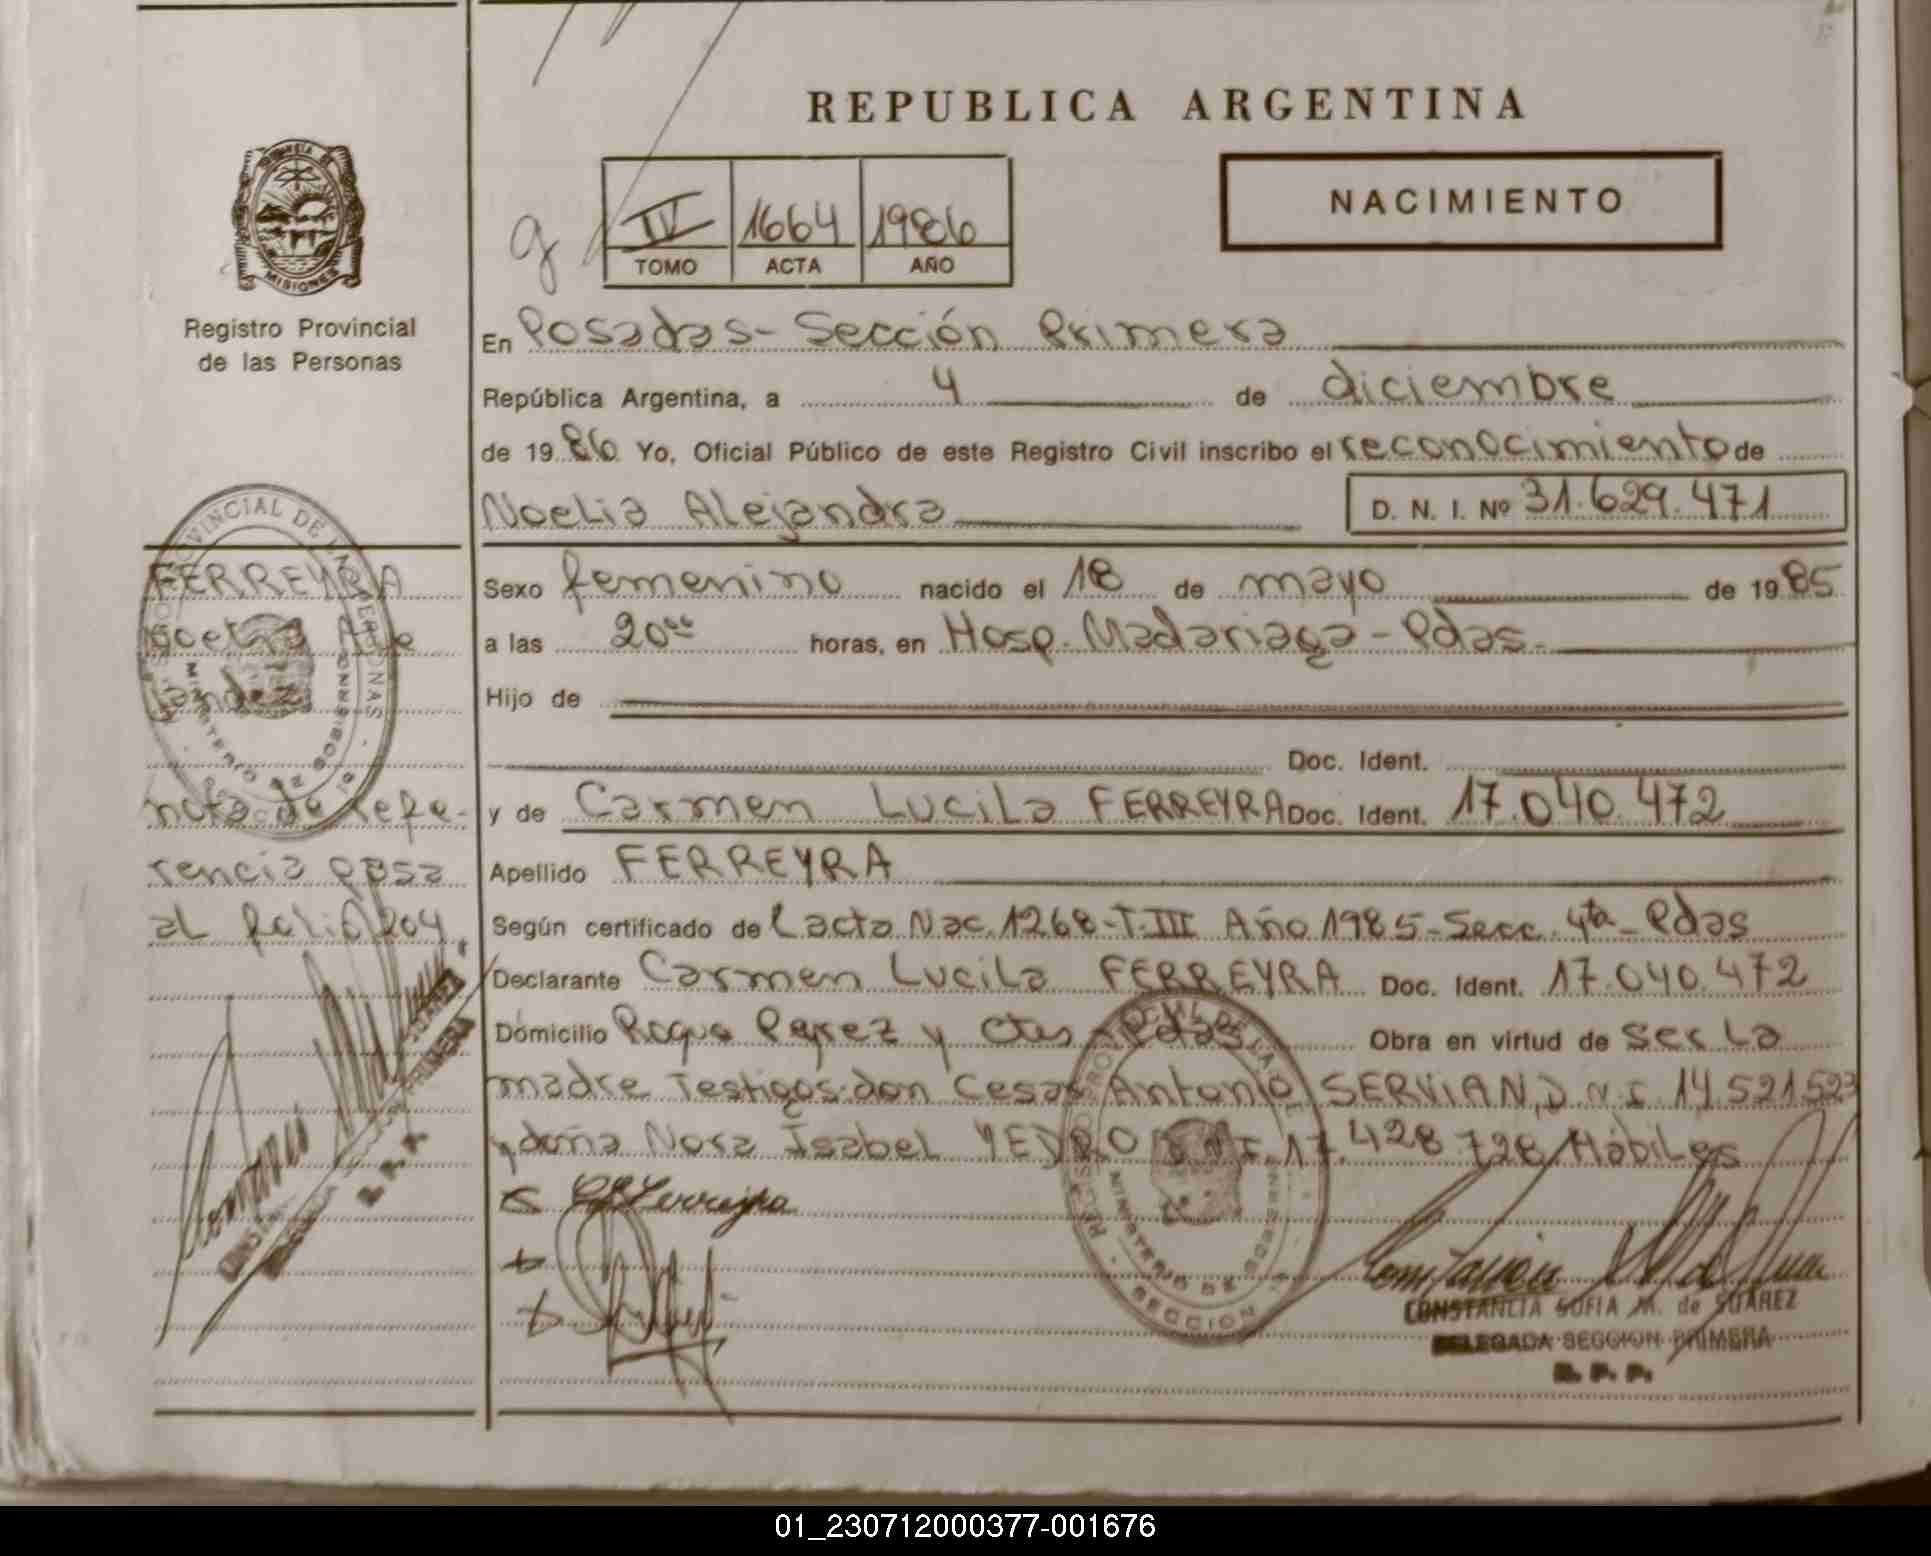 REPUBLICA ARGENTINA
NACIMIENTO
IV 1664 1986
TOMO ACTA AÑO
PROVINCIA DE
MISIONES
Registro Provincial
de las Personas
En Posadas - Sección Primera
República Argentina, a 4 de diciembre
de 1986 Yo, Oficial Público de este Registro Civil inscribo el reconocimiento de
Noelia Alejandra D. N. I. Nº 31.629.471
Sexo femenino nacido el 18 de mayo de 1985
a las 20 horas, en Hosp. Madariaga - Pdas.
Hijo de
Doc. Ident.
y de Carmen Lucila FERREYRA Doc. Ident. 17.040.472
Apellido FERREYRA
Según certificado de Lacta Nac. 1268-T.III Año 1985-Secc. 4ta - Pdas
Declarante Carmen Lucila FERREYRA Doc. Ident. 17.040.472
Domicilio Roque Perez y Pdas Obra en virtud de ser la
madre Testigos: don Cesar Antonio SERVIAN, D.N.I. 14.521.523
y doña Nora Isabel YEDRO D.N.I. 17.428.728 Hábiles
FERREYRA
Noelia Ale
jandra
nota de refe-
rencia pasa
al folio 204
CONSTANCIA SOFIA M. de SUAREZ
DELEGADA SECCION PRIMERA
R. P. P.
01_230712000377-001676